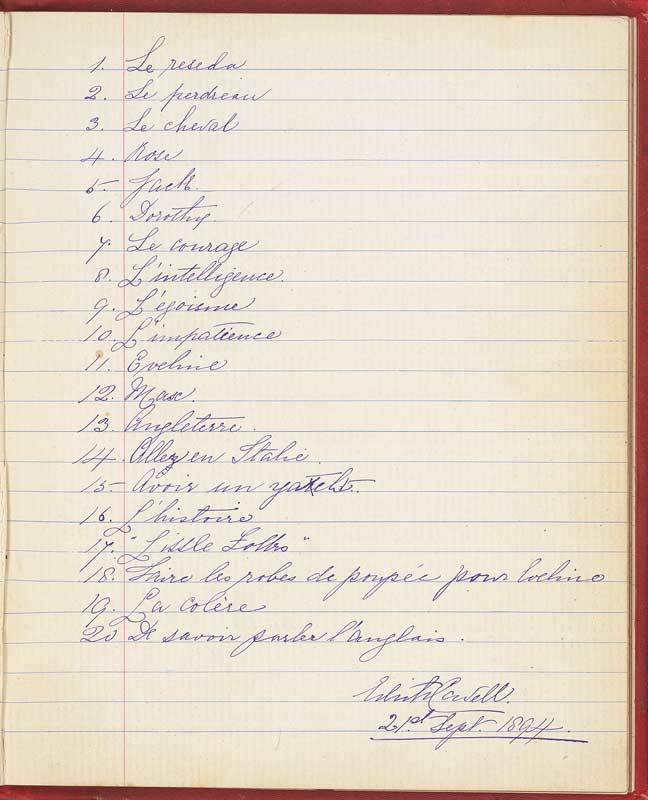 1. Le reseda
2. Le perdreau
3. Le cheval
4. Rose
5. Jack.
6. Dorothy.
7. Le courage
8. L'intelligence.
9. L'égoisme
10. L'impatience
11. Eveline
12. Max.
13. Angleterre.
14. Allez en Italie.
15. Avoir un yacht.
16. L'histoire
17. "Little Folks"
18. Faire les robes de poupée pour Eveline
19. La colère
20 De savoir parler l'anglais.
Edith Cavell.
21st Sept. 1894.